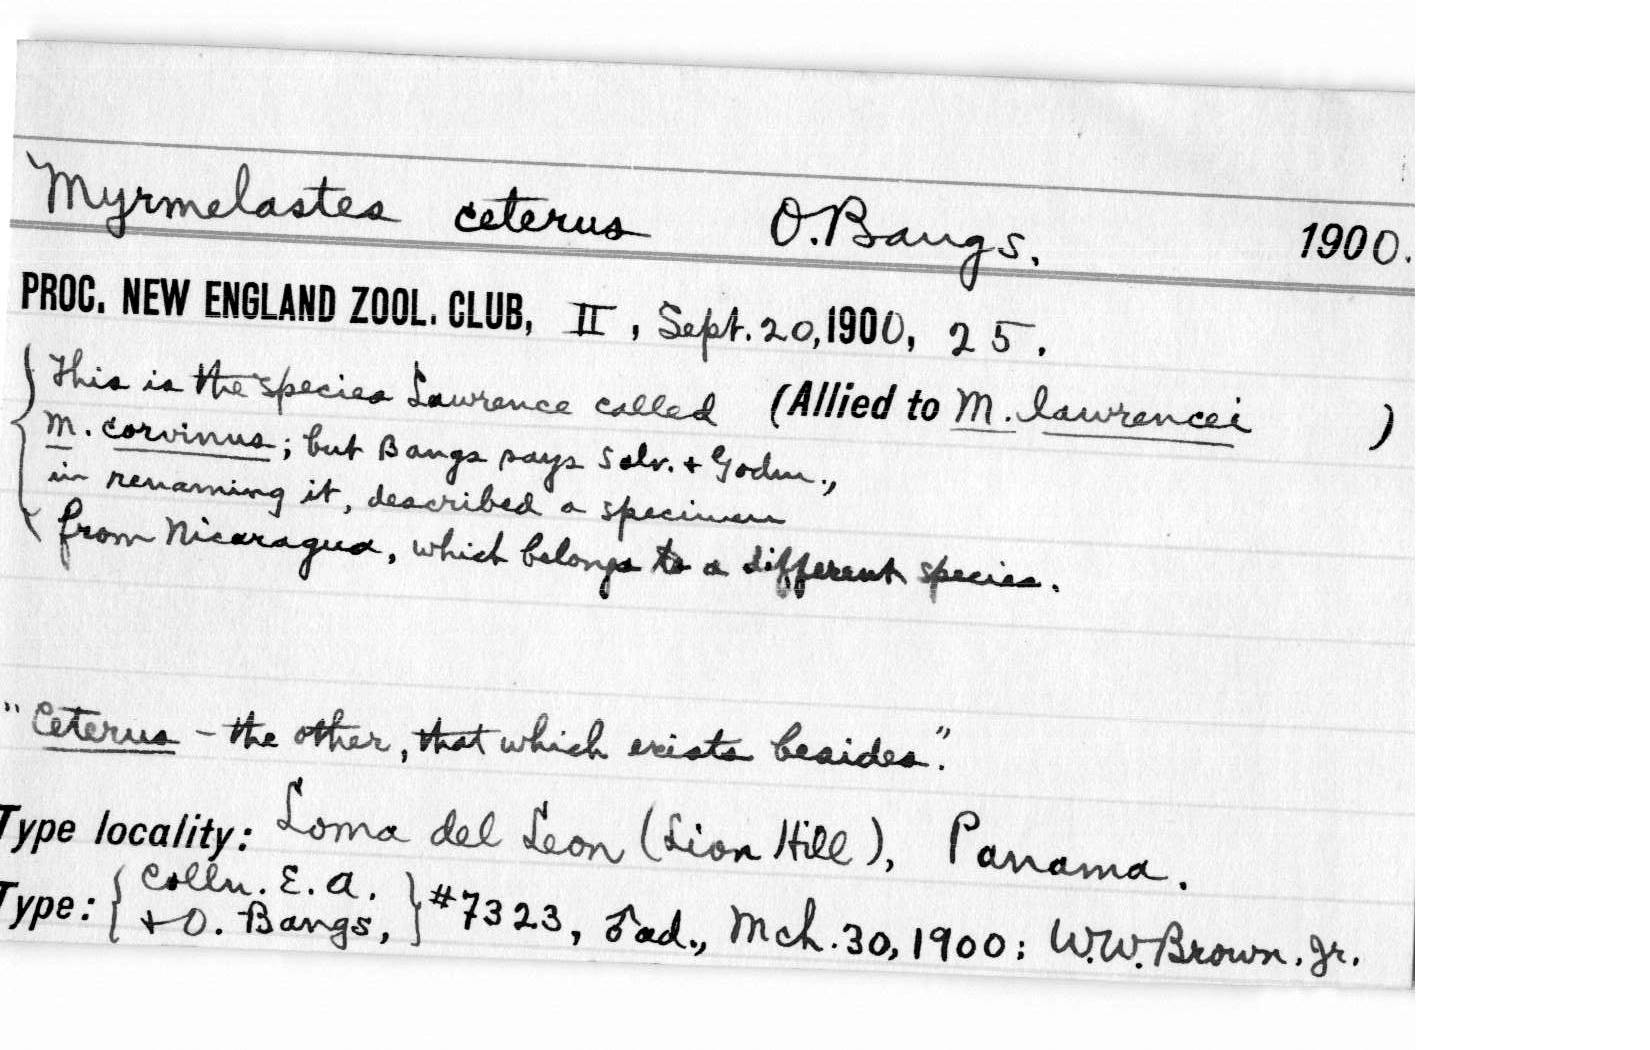 Myrmelastes ceterus O. Bangs. 1900.
PROC. NEW ENGLAND ZOOL. CLUB, II, Sept. 20, 1900, 25.
This is the species Lawrence called (Allied to M. lawrencei )
M. corvinus; but Bangs says Salv. + Godm.,
in renaming it, described a specimen
from Nicaragua, which belongs to a different species.
"Ceterus - the other, that which exists besides".
Type locality: Loma del Leon (Lion Hill), Panama.
Type: { Colln. E. A.
+ O. Bangs, } #7323, ♂ ad., Mch. 30, 1900: W.W. Brown. Jr.